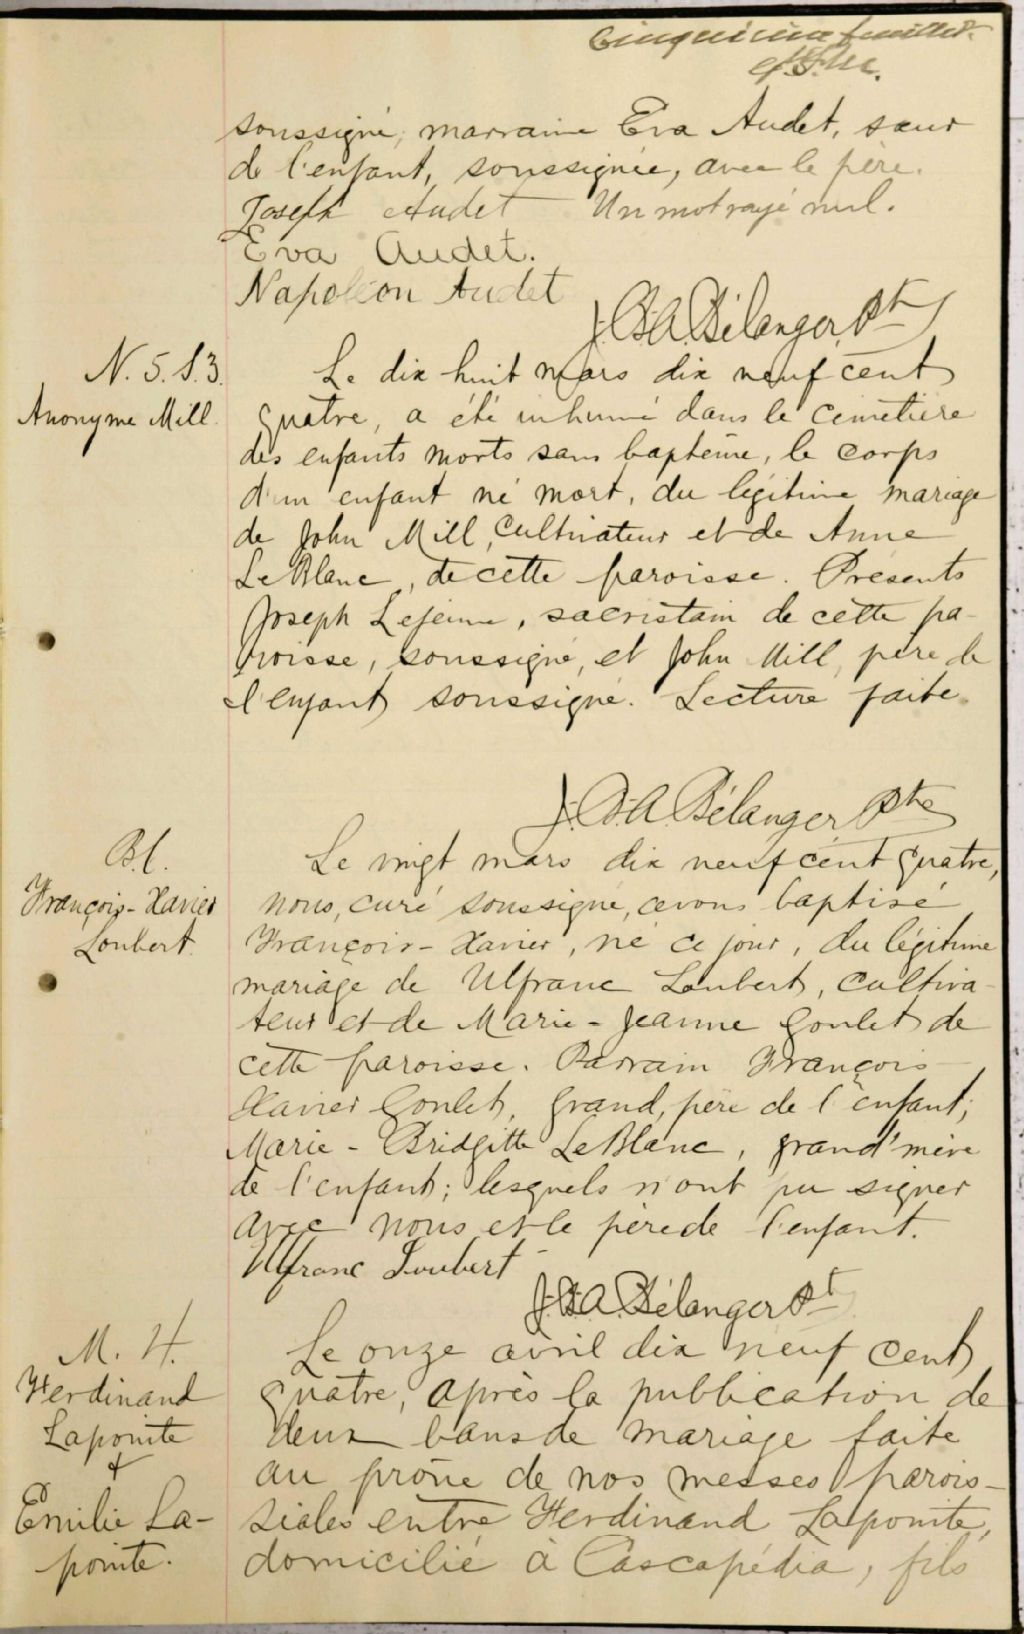 Cinquième feuillet.
soussigné, marraine Eva Audet, sœur
de l'enfant, soussignée, avec le père.
Joseph Audet Un mot rayé nul.
Eva Audet.
Napoléon Audet
J.B.A. Bélanger, Pt
N. 5. S. 3.
Anonyme Mill.
Le dix huit mars dix neuf cent
quatre, a été inhumé dans le cimetière
des enfants morts sans baptême, le corps
d'un enfant né mort, du légitime mariage
de John Mill, cultivateur et de Anne
LeBlanc, de cette paroisse. Présents
Joseph Lejeune, sacristain de cette pa-
roisse, soussigné, et John Mill, père de
l'enfant soussigné. Lecture faite.
J.B.A. Bélanger Ptre
B. 6.
François-Xavier
Loubert.
Le vingt mars dix neuf cent quatre,
nous, curé soussigné, avons baptisé
François-Xavier, né ce jour, du légitime
mariage de Ulfranc Loubert, cultiva-
teur et de Marie-Jeanne Goulet de
cette paroisse. Parrain François-
Xavier Goulet, grand, père de l'enfant;
Marie-Bridgitte LeBlanc, grand'mère
de l'enfant; lesquels n'ont pu signer
avec nous et le père de l'enfant.
Ulfranc Loubert
J.B.A. Bélanger Pt
M. 4.
Ferdinand
Lapointe
+
Emilie La-
pointe.
Le onze avril dix neuf cent
quatre, après la publication de
deux bans de mariage faite
au prône de nos messes parois-
siales entre Ferdinand Lapointe,
domicilié à Cascapédia, fils